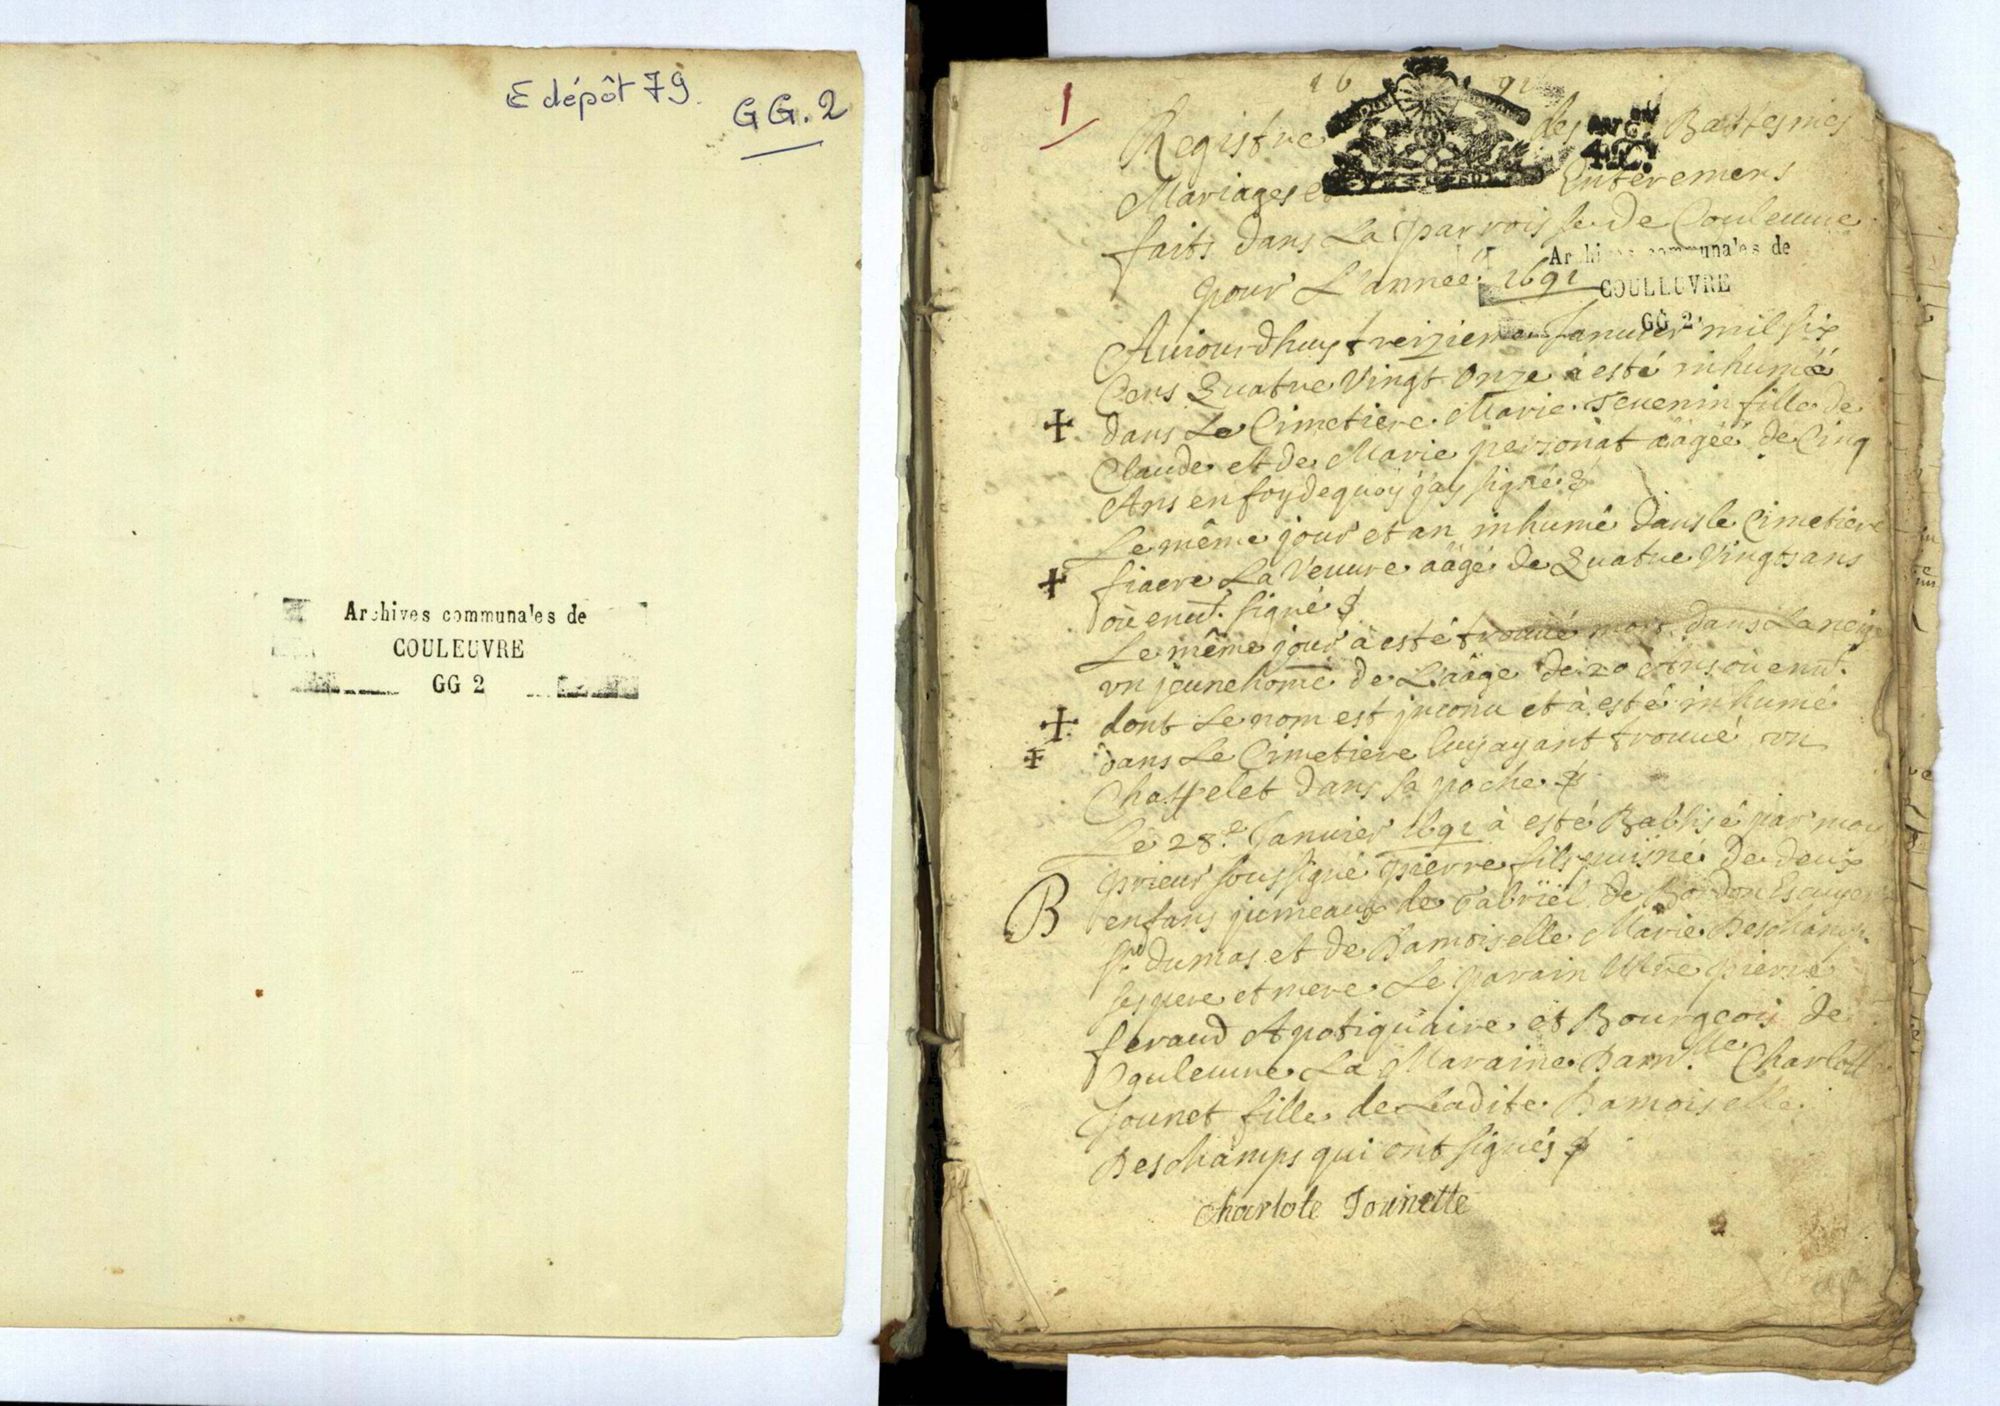 E dépôt 79.
GG. 2
Archives communales de
COULEUVRE
GG 2
1
16 91
Registre des Battesmes
Mariages et Enteremens
faits dans La parroisse de Couleuure
Archives communales de
pour L'année 1691
COULEUVRE
GG 2
Auiourdhuy treizieme Januier mil six
Cens Quatre Vingt Onze à esté inhumeé
dans Le Cimetiere Marie Teuenin fille de
Claude et de Marie personat aâgeé de Cinq
Ans en foy de quoy j'ay signé
Le même jour et an inhumé dans le Cimetiere
fiacre La Veuure aâgé de Quatre Vingts ans
ou enut. signé
Le même jour à esté trouué mort dans La neige
vn jeune home de L'aâge de 20 Ans ou enut.
dont Le nom est jnconu et à esté inhumé
dans Le Cimetiere luy ayant trouué vn
Chappelet dans sa poche
Le 28e Januier 1691 à esté Babtisé par moy
prieur soussigné pierre fils puisné de deux
B
enfans jumeaux de Gabriël de Bordon Escuyer
sr. dumas et de Damoiselle Marie Deschamps
ses pere et mere Le parain Mre pierre
feraud Apotiquaire et Bourgeois de
Couleuure La Maraine Damlle Charlotte
Jounet fille de Ladite Damoiselle
Deschamps qui ont signés
Charlote Jounette